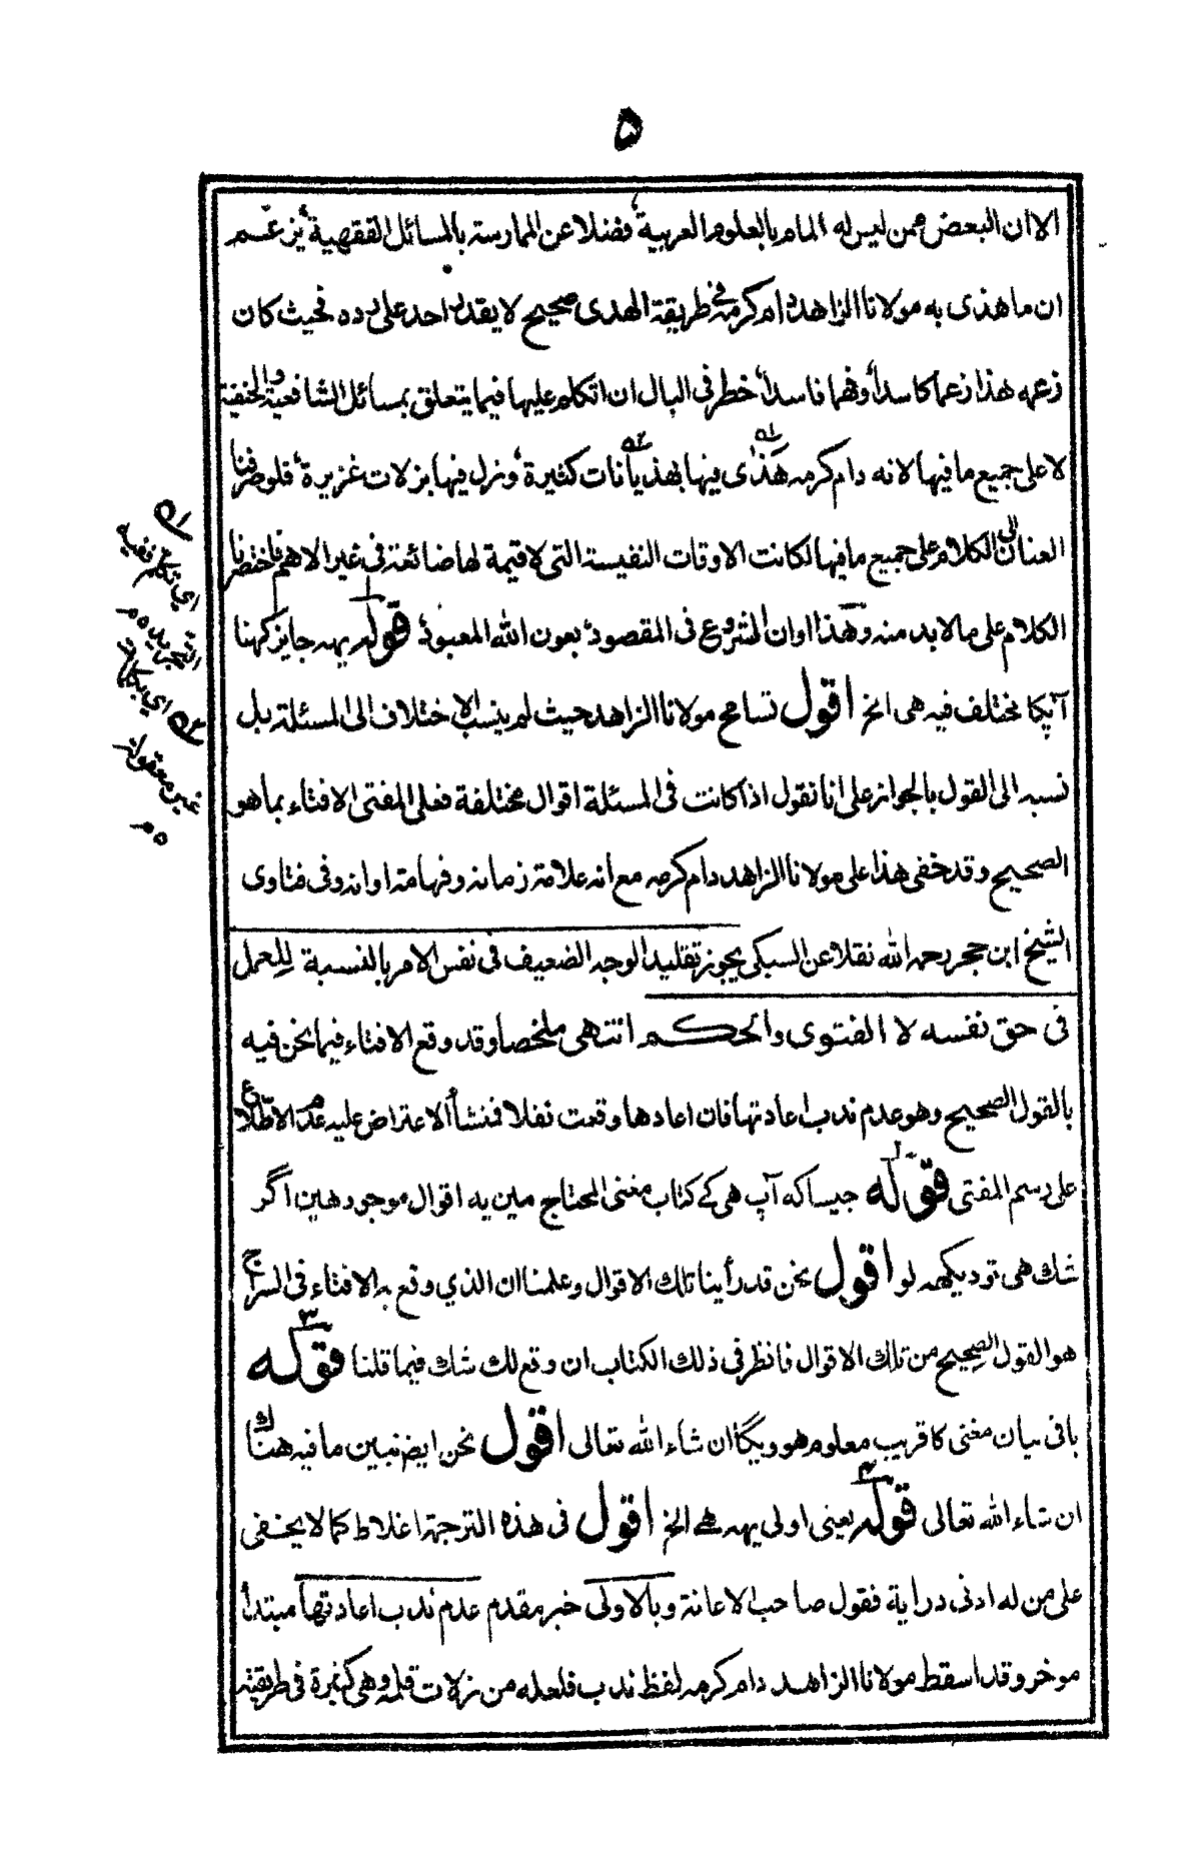 ٥
الا ان البعض ممن ليس له المام بالعلوم العربية، فضلا عن الممارسة بالمسائل الفقهية، يزعم
ان ما هذى به مولانا الزاهد دام كرمه فى طريقة الهدى صحيح لا يقدر احد على رده فحيث كان
زعمه هذا زعما كاسدا، وفهما فاسدا، خطر فى البال ان اتكلم عليها فيما يتعلق بمسائل الشافعية والحنفية
لا على جميع ما فيها لانه دام كرمه هَذٰى فيها بهذيانات كثيرة، ونزل فيها بزلات غزيرة، فلو صرفنا
العنان الى الكلام على جميع ما فيها لكانت الاوقات النفيسة التى لا قيمة لها ضائعة فى غير الاهم فاختصرنا
الكلام على ما لا بد منه وهذا اوان الشروع فى المقصود، بعون الله المعبود، قوله يهه جايز كهنا
آپكا مختلف فيه هى الخ اقول تسامح مولانا الزاهد حيث لم ينسب الاختلاف الى المسئلة بل
نسبه الى القول بالجواز على انا نقول اذا كانت فى المسئلة اقوال مختلفة فعلى المفتى الافتاء بما هو
الصحيح وقد خفى هذا على مولانا الزاهد دام كرمه مع انه علامة زمانه وفهامة اوانه وفى فتاوى
الشيخ ابن حجر رحمه الله نقلا عن السبكى يجوز تقليد الوجه الضعيف فى نفس الامر بالنسبة للعمل
فى حق نفسه لا الفتوى والحكم انتهى ملخصا وقد وقع الافتاء فيما نحن فيه
بالقول الصحيح وهو عدم ندب اعادتها فان اعادها وقعت نفلا فمنشأ الاعتراض عليه عدم الاطلاع
على رسم المفتى قوله جيساكه آپ هى كے كتاب مغنى المحتاج مين يه اقوال موجود هين اگر
شك هى تو ديكهه لو اقول نحن قد رأينا تلك الاقوال وعلمنا ان الذي وقع به الافتاء فى السراج
هو القول الصحيح من تلك الاقوال فانظر فى ذلك الكتاب ان وقع لك شك فيما قلنا قوله ٣
باقى بيان مغنى كا قريب معلوم هوويگا ان شاء الله تعالى اقول نحن ايض نبين ما فيه هناك
ان شاء الله تعالى قوله يعنى اولى يهه هے الخ اقول فى هذه الترجمة اغلاط كما لا يخفى
على من له ادنى دراية فقول صاحب الاعانة وبالاولى خبر مقدم عدم ندب اعادتها مبتدأ
موخر وقد اسقط مولانا الزاهد دام كرمه لفظ ندب فلعله من زلات قلمه وهى كثيرة فى طريقته
اى تكلم
غير معقولة